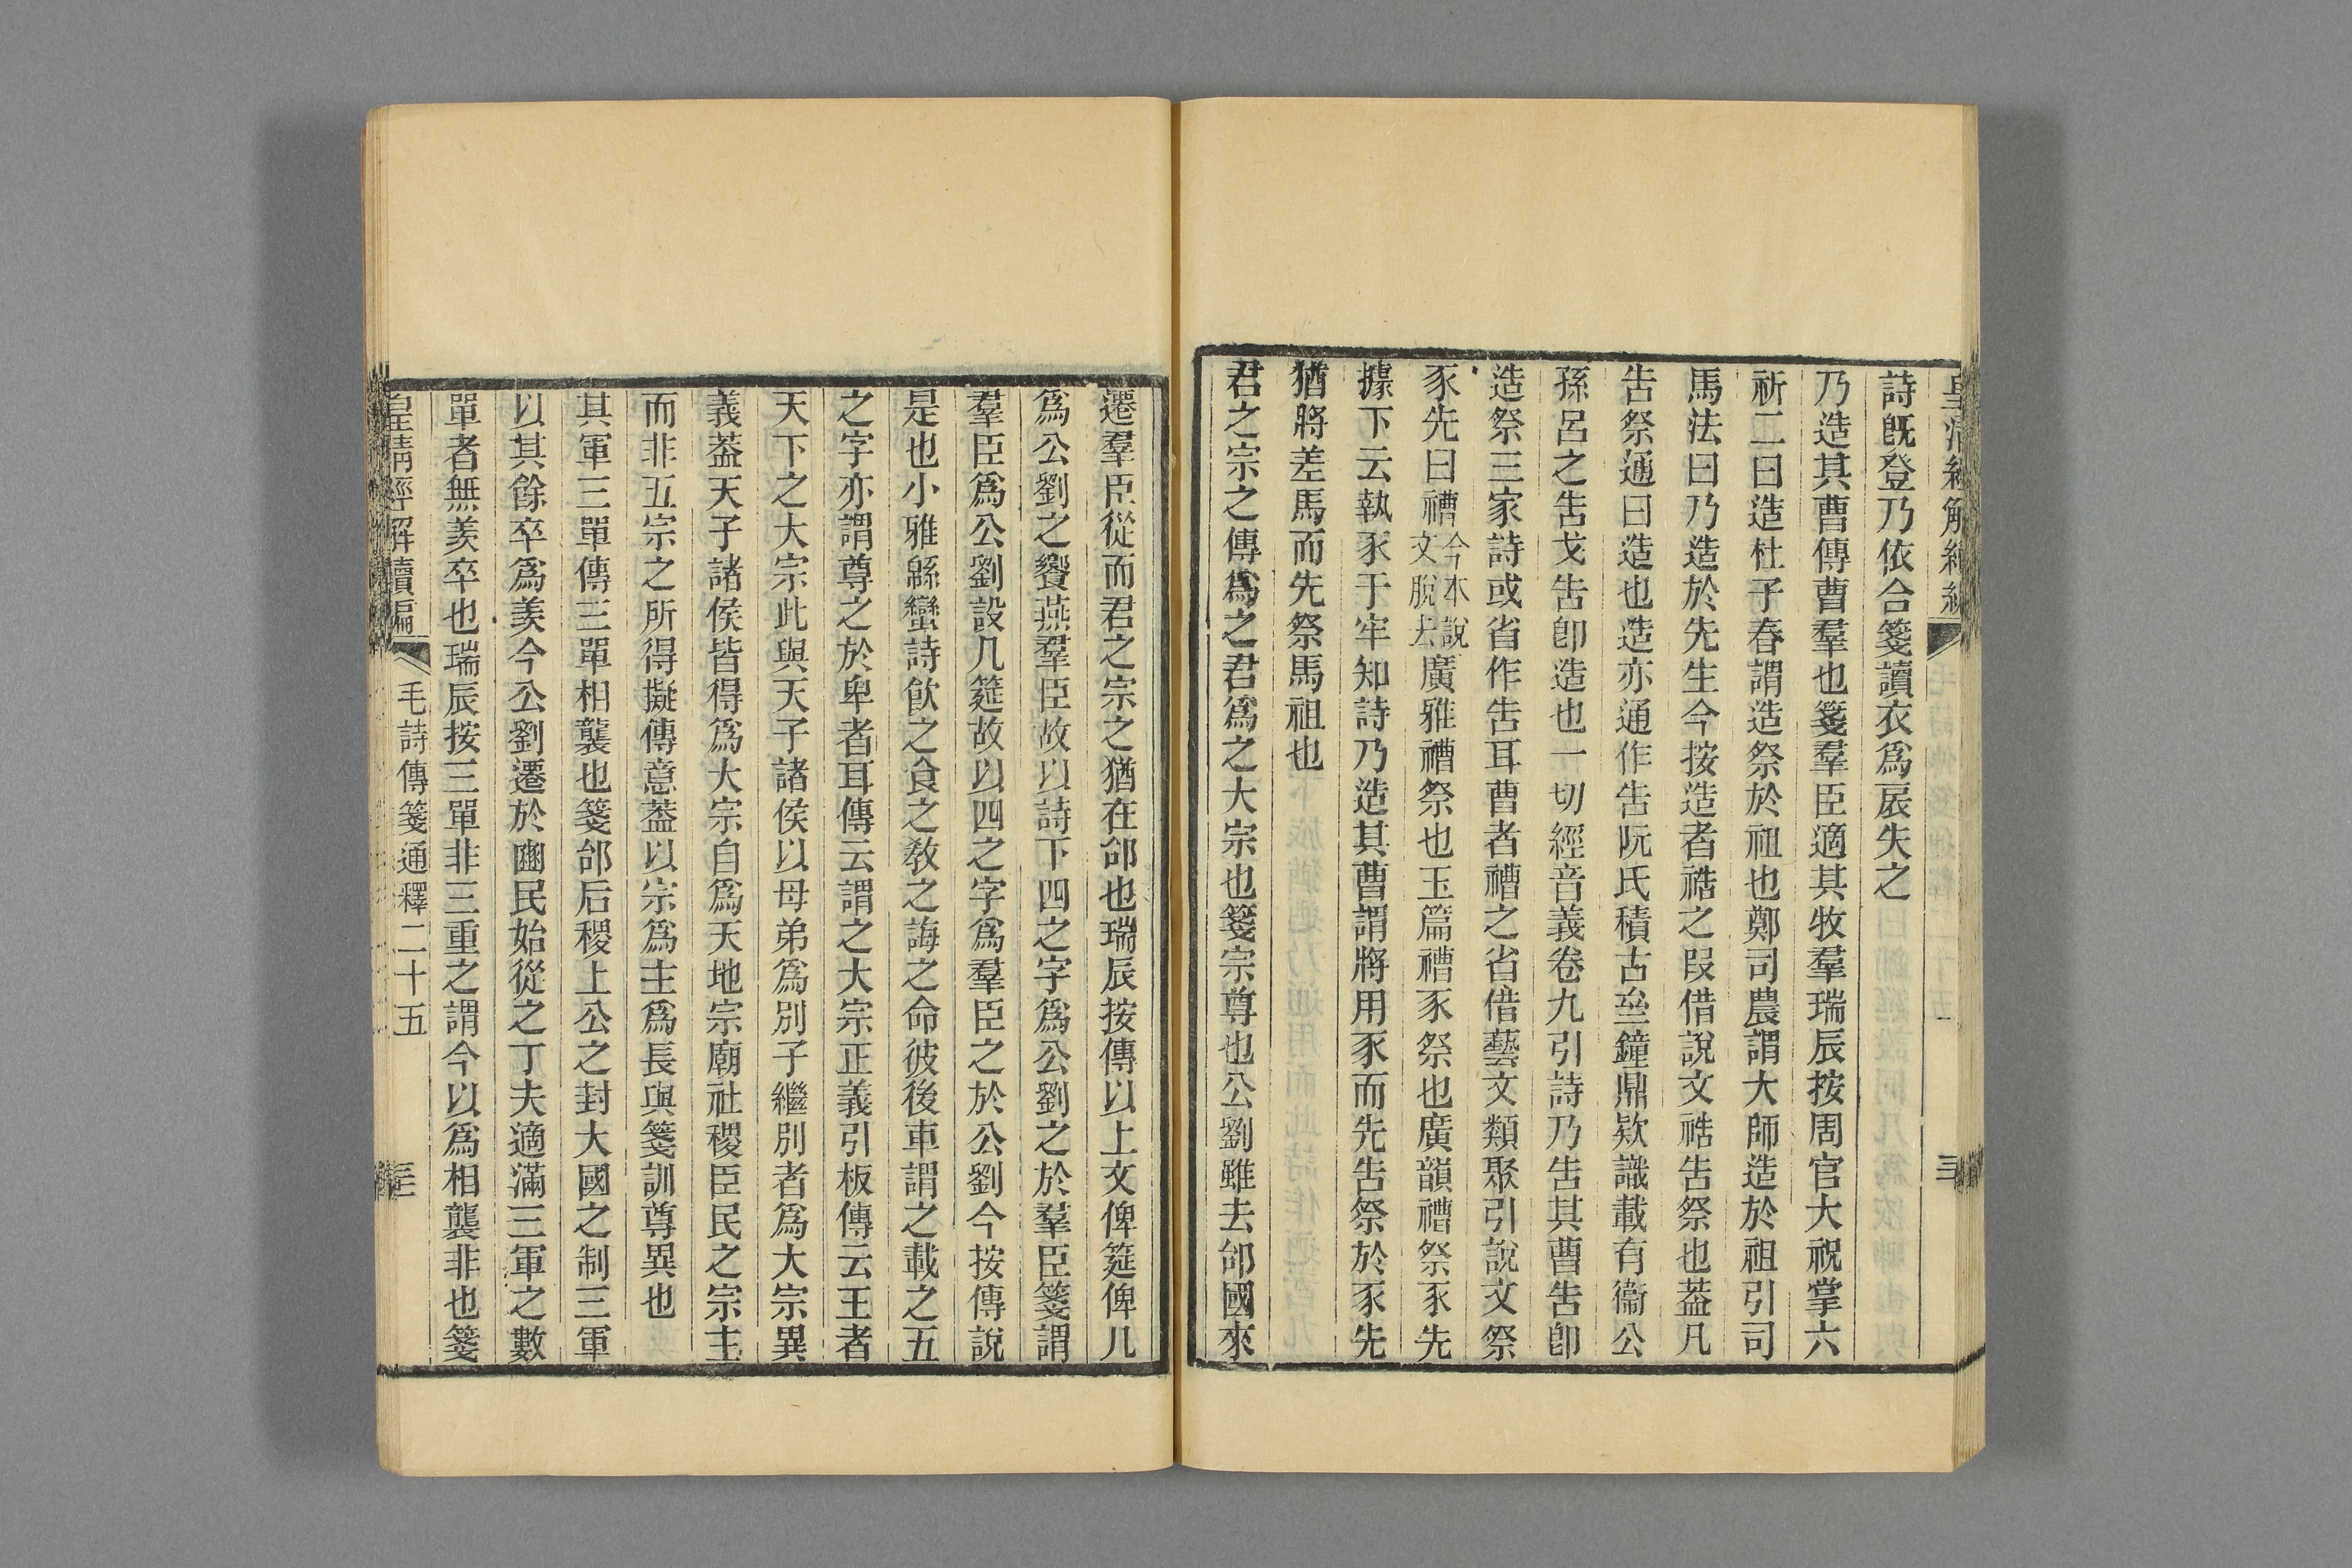 詩旣登乃依合箋讀衣爲扆失之
乃造其曹傳曹羣也箋羣臣適其牧羣瑞辰按周官大祝掌六
祈二曰造杜子春謂造祭於祖也鄭司農謂大師造於祖引司
馬法曰乃造於先生今按造者祰之叚借說文祰告祭也葢凡
告祭通曰造也造亦通作告阮氏積古㙓鐘鼎欵識載有衞公
孫呂之告戈告卽造也一切經音義卷九引詩乃告其曹告卽
造祭三家詩或省作告耳曹者禮之省借藝文類聚引說文祭
豕先曰禮今本說文脫去廣雅禮祭也玉篇禮豕祭也廣韻禮祭豕先
據下云執豕于牢知詩乃造其曹謂將用豕而先告祭於豕先
猶將差馬而先祭馬祖也
君之宗之傳爲之君爲之大宗也箋宗尊也公劉雖去邰國來
遷羣臣從而君之宗之猶在邰也瑞辰按傳以上文俾筵俾几
爲公劉之饗燕羣臣故以詩下四之字爲公劉之於羣臣箋謂
羣臣爲公劉設几筵故以四之字爲羣臣之於公劉今按傳說
是也小雅緜蠻詩飮之食之敎之誨之命彼後車謂之載之五
之字亦謂尊之於卑者耳傳云謂之大宗正義引板傳云王者
天下之大宗此與天子諸侯以母弟爲別子繼別者爲大宗異
義葢天子諸侯皆得爲大宗自爲天地宗廟社稷臣民之宗主
而非五宗之所得擬傳意葢以宗爲主爲長與箋訓尊異也
其軍三單傳三單相襲也箋邰后稷上公之封大國之制三軍
以其餘卒爲羨今公劉遷於豳民始從之丁夫適滿三軍之數
單者無羨卒也瑞辰按三單非三重之謂今以爲相襲非也箋
皇淸經解續編 毛詩傳箋通釋二十五